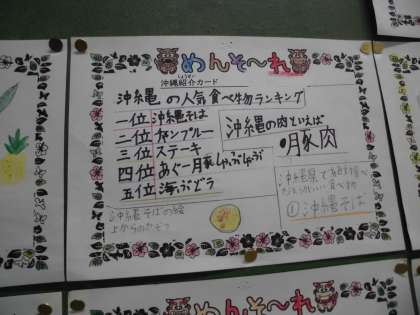 めんそ〜れ
しょうかい
沖縄紹介カード
沖縄の人気食べ物ランキング
一位 沖縄そば
二位 チャンプルー
三位 ステーキ
四位 あぐー豚しゃぶしゃぶ
五位 海ぶどう
沖縄の肉といえば
・豚肉
沖縄県で
食べ物
①沖縄そば
沖縄そばの絵
上からのかくど
めんそ〜れ
めんそ〜れ